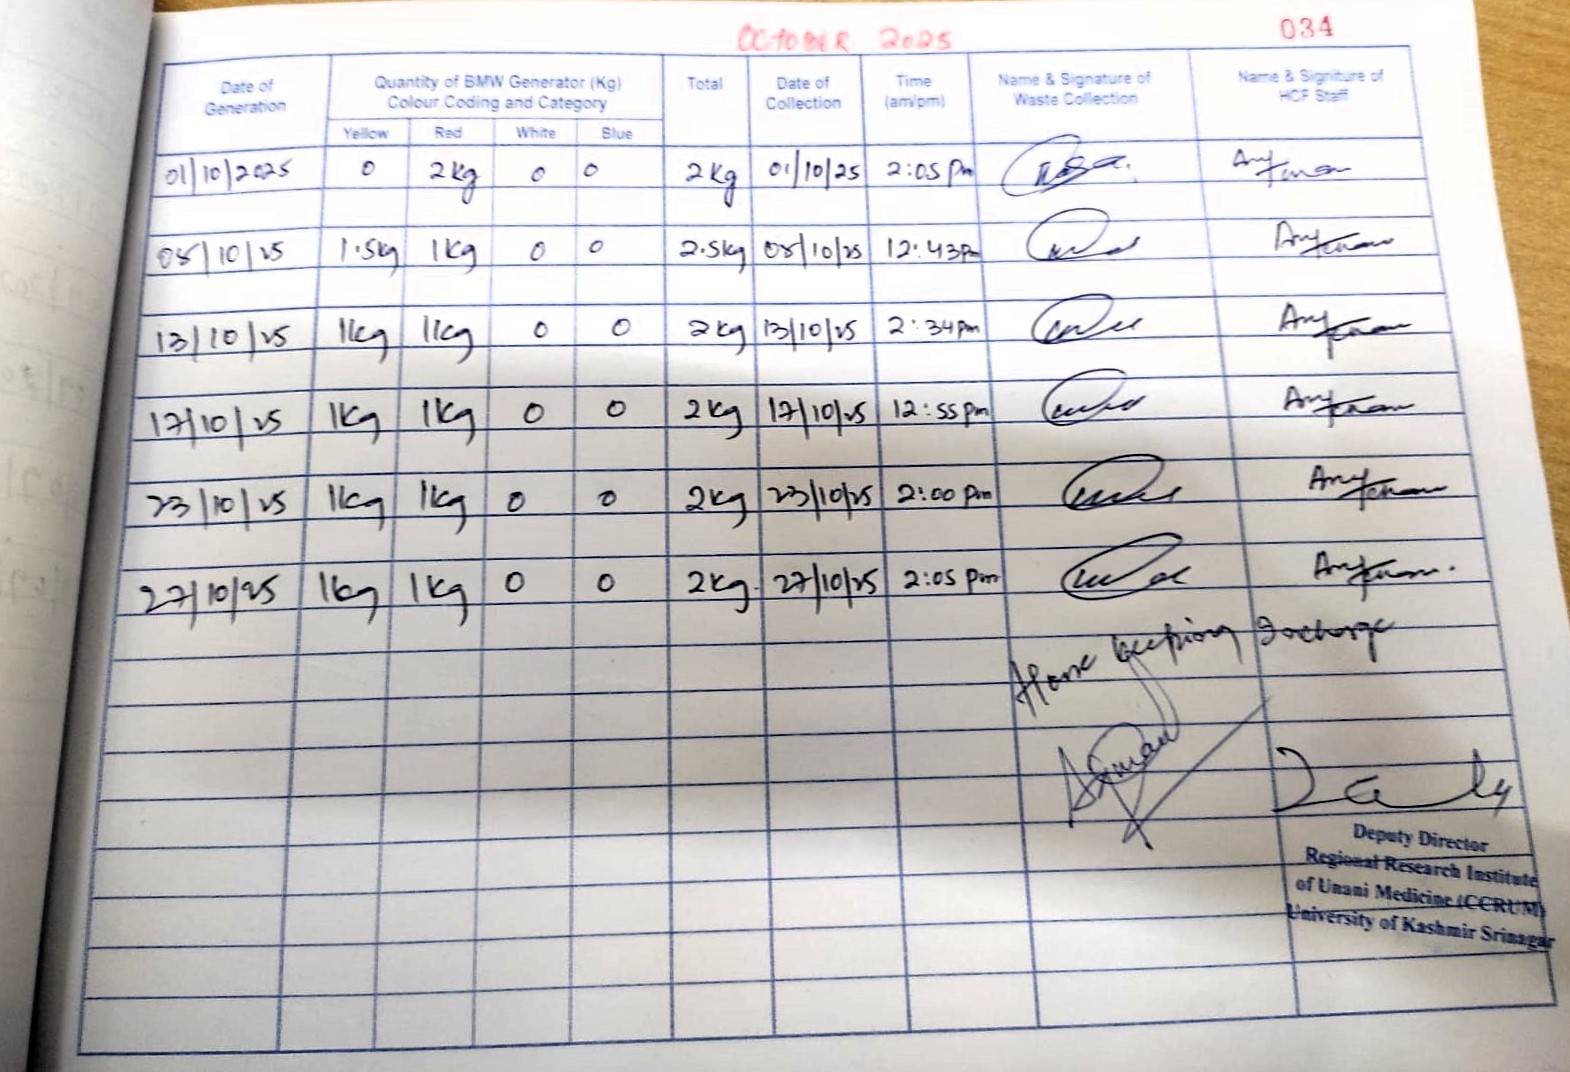 OCTOBER 2025
034
Date of Generation Quantity of BMW Generator (Kg) Colour Coding and Category Total Date of Collection Time (am/pm) Name & Signature of Waste Collection Name & Signiture of HCF Staff
Yellow Red White Blue
01/10/2025 0 2kg 0 0 2kg 01/10/25 2:05 Pm
08/10/25 1.5kg 1kg 0 0 2.5kg 08/10/25 12:43Pm
13/10/25 1kg 1kg 0 0 2kg 13/10/25 2:34pm
17/10/25 1kg 1kg 0 0 2kg 17/10/25 12:55pm
23/10/25 1kg 1kg 0 0 2kg 23/10/25 2:00 pm
27/10/25 1kg 1kg 0 0 2kg. 27/10/25 2:05 pm
Deputy Director
Regional Research Institute
of Unani Medicine (CCRUM)
University of Kashmir Srinagar